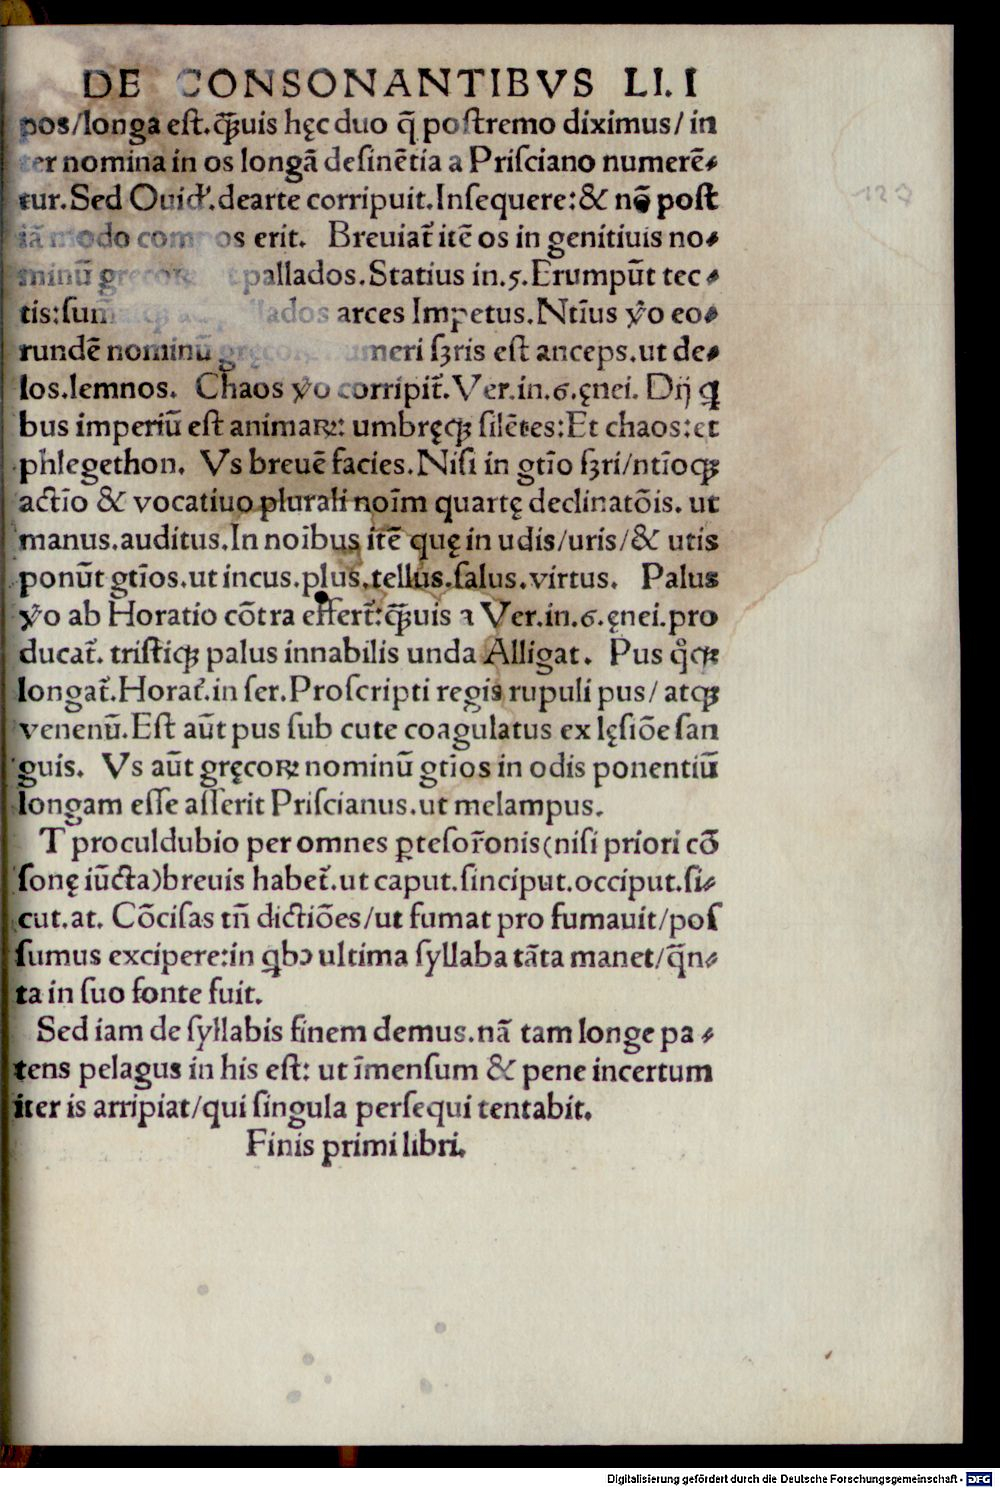 DE CONSONANTIBVS LI. I
pos/longa eſt.ꝙ̃uis hęc duo q̃ poſtremo diximus/ in
ter nomina in os longã deſinẽtia a Priſciano numerẽ⸗
tur. Sed Ouid'. de arte corripuit. Inſequere: & nõ poſt
iã modo compos erit. Breuiat᷑ itẽ os in genitiuis no⸗
minũ gręcoꝝ ut pallados. Statius in. 5. Erumpũt tec⸗
tis: ſum̃aſqꝫ ad pallados arces Impetus. Ntĩus ỹo eo⸗
rundẽ nominũ gręcoꝝ numeri ſꝫris eſt anceps. ut de⸗
los. lemnos. Chaos ỹo corripit᷑. Ver. in. 6. ęnei. Dij ꝗ
bus imperiũ eſt animaꝝ: umbręqꝫ ſilẽtes: Et chaos: et
phlegethon. Vs breuẽ facies. Niſi in gtĩo ſꝫri/ntĩoqꝫ
actĩo & vocatiuo plurali noĩm quartę declinatõis. ut
manus. auditus. In noĩbus itẽ quę in udis/uris/& utis
ponũt gtĩos. ut incus. plus. tellus. ſalus. virtus. Palus
ỹo ab Horatio cõtra effert᷑: ꝙ̃uis a Ver. in. 6. ęnei. pro
ducat᷑. triſtiqꝫ palus innabilis unda Alligat. Pus qͦqꝫ
longat᷑. Horat᷑. in ſer. Proſcripti regis rupuli pus/ atqꝫ
venenũ. Eſt aũt pus ſub cute coagulatus ex lęſiõe ſan
guis. Vs aũt gręcoꝝ nominũ gtĩos in odis ponentiũ
longam eſſe aſſerit Priſcianus. ut melampus.
T proculdubio per omnes ꝑte ſor᷑onis (niſi priori cõ
ſonę iũcta) breuis habet᷑. ut caput. ſinciput. occiput. ſi⸗
cut. at. Cõciſas tñ dictiões/ut fumat pro fumauit/poſ
ſumus excipere: in ꝗbꝰ ultima ſyllaba tãta manet/q̃n⸗
ta in ſuo fonte fuit.
Sed iam de ſyllabis finem demus. nã tam longe pa⸗
tens pelagus in his eſt: ut ĩmenſum & pene incertum
iter is arripiat/qui ſingula perſequi tentabit.
Finis primi libri.
Digitalisierung gefördert durch die Deutsche Forschungsgemeinschaft - DFG